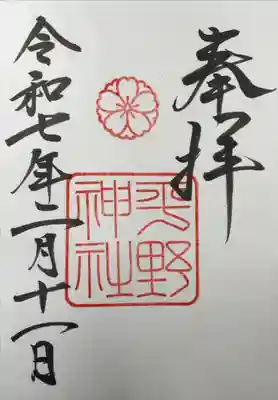 奉拝
平野
神社
令和七年二月十一日